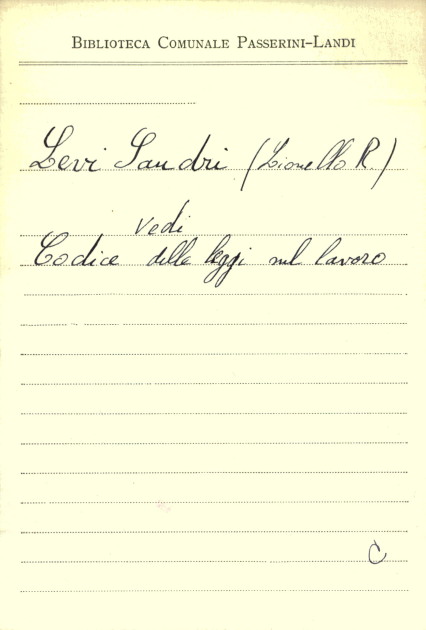 BIBLIOTECA COMUNALE PASSERINI-LANDI
Levi Sandri (Lionello R.)
vedi
Codice delle leggi sul lavoro
C